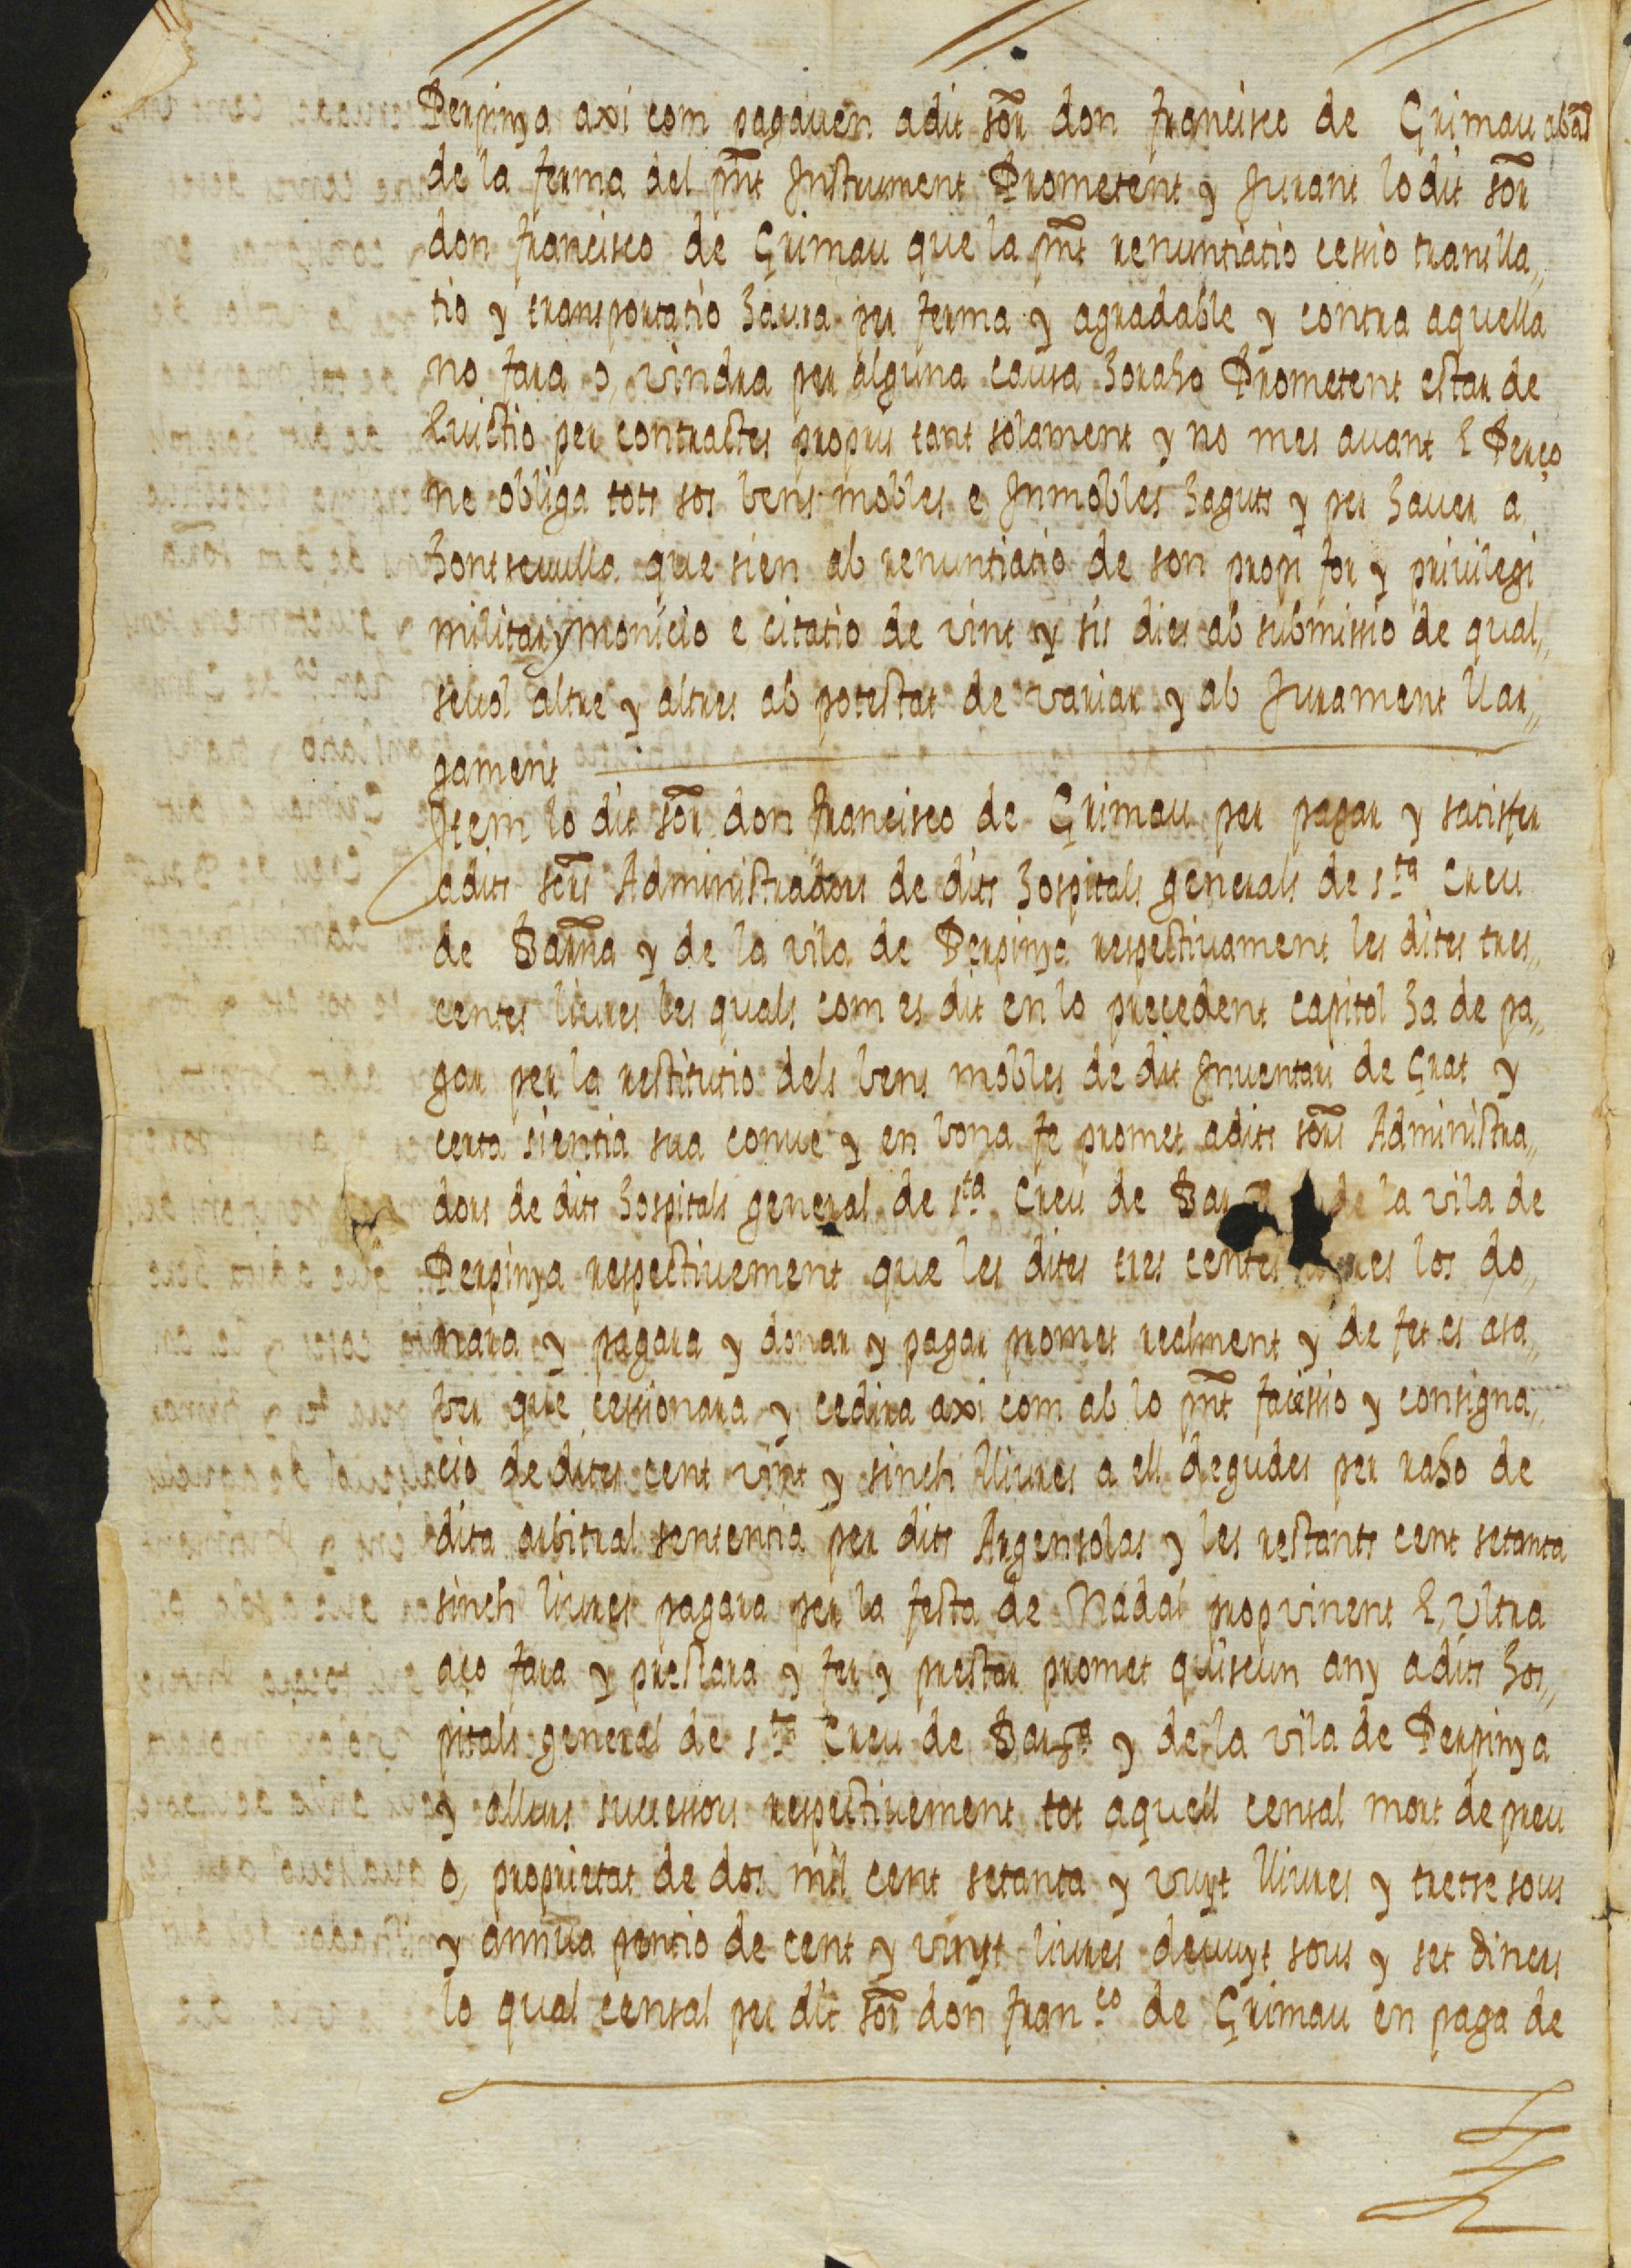 Perpinya axi com pagauen a dit sor don francisco de Grimau abans
de la ferma del pnt Instrument Prometent y Jurant lo dit sor
don francisco de Grimau que la pnt renuntiatio cessio transla,,
tio y transportatio haura per ferma y agradable y contra aquella
no fara o, vindra per alguna causa ho raho Prometent estar de
Euictio per contractes propris tant solament y no mes auant E Perço
ne obliga tots sos bens mobles e Inmobles haguts y per hauer a
hont seuulla que sien ab renuntiatio de son propi for y priuilegi
militar y monicio e citatio de vint y sis dies ab submissio de qual,,
seuol altre y altres ab potestat de variar y ab Jurament llar,,
gament
Item lo dit sor don francisco de Grimau per pagar y satisfer
a dits sors Administradors de dits hospitals generals de sta Creu
de Barna y de la vila de Perpinya respectiuament les dites tres,,
centes liures les quals com es dit en lo precedent capitol ha de pa,,
gar per la restitutio dels bens mobles de dit Inuentari de Grat y
certa sientia sua conue y en bona fe promet a dits sors Administra,,
dors de dits hospitals general de sta Creu de Bar de la vila de
Perpinya respectiuement que les dites tres centes los do,,
nara y pagara y donar y pagar promet realment y de fet es asa,,
ber que cessionara y cedira axi com ab lo pnt fa cessio y consigna,,
cio de dites cent vint y sinch lliures a ell degudes per raho de
dita arbitral sententia per dits Argensolas y les restants cent setanta
sinch liures pagara per la festa de Nadal propvinent E, Ultra
aço fara y prestara y fer y prestar promet quiscun any a dits hos,,
pitals general de sta Creu de Barna y de la vila de Perpinya
y allurs sucressors respectiuement tot aquell censal mort de preu
o, proprietat de dos mil cent setanta y vuyt lliures y tretse sous
y annua pentio de cent y vinyt liures devuyt sous y set diners
lo qual censal per dit sor don franco de Grimau en paga de